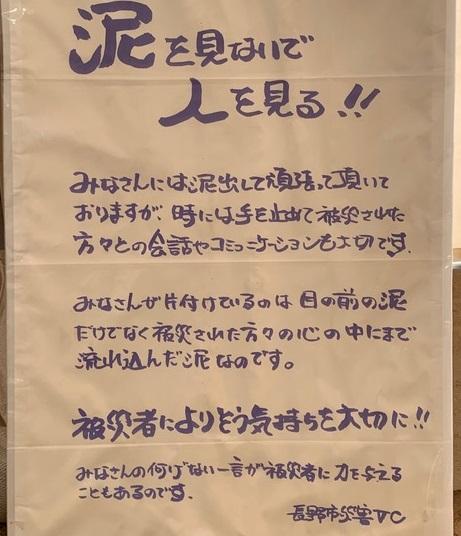 泥を見ないで
人を見る!!
みなさんには泥出しで頑張って頂いて
おりますが、時には手を止めて被災された
方々との会話やコミュニケーションも大切です.
みなさんが片付けているのは目の前の泥
だけでなく被災された方々の心の中にまで
流れ込んだ泥なのです。
被災者によりそう気持ちを大切に!!
みなさんの何げない一言が被災者に力を与える
こともあるのです.
長野市災害VC